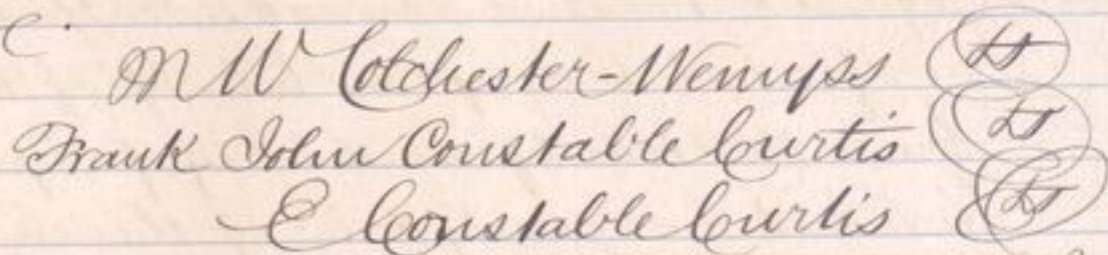 M W Colchester-Wemyss LS
Frank John Constable Curtis LS
E Constable Curtis LS